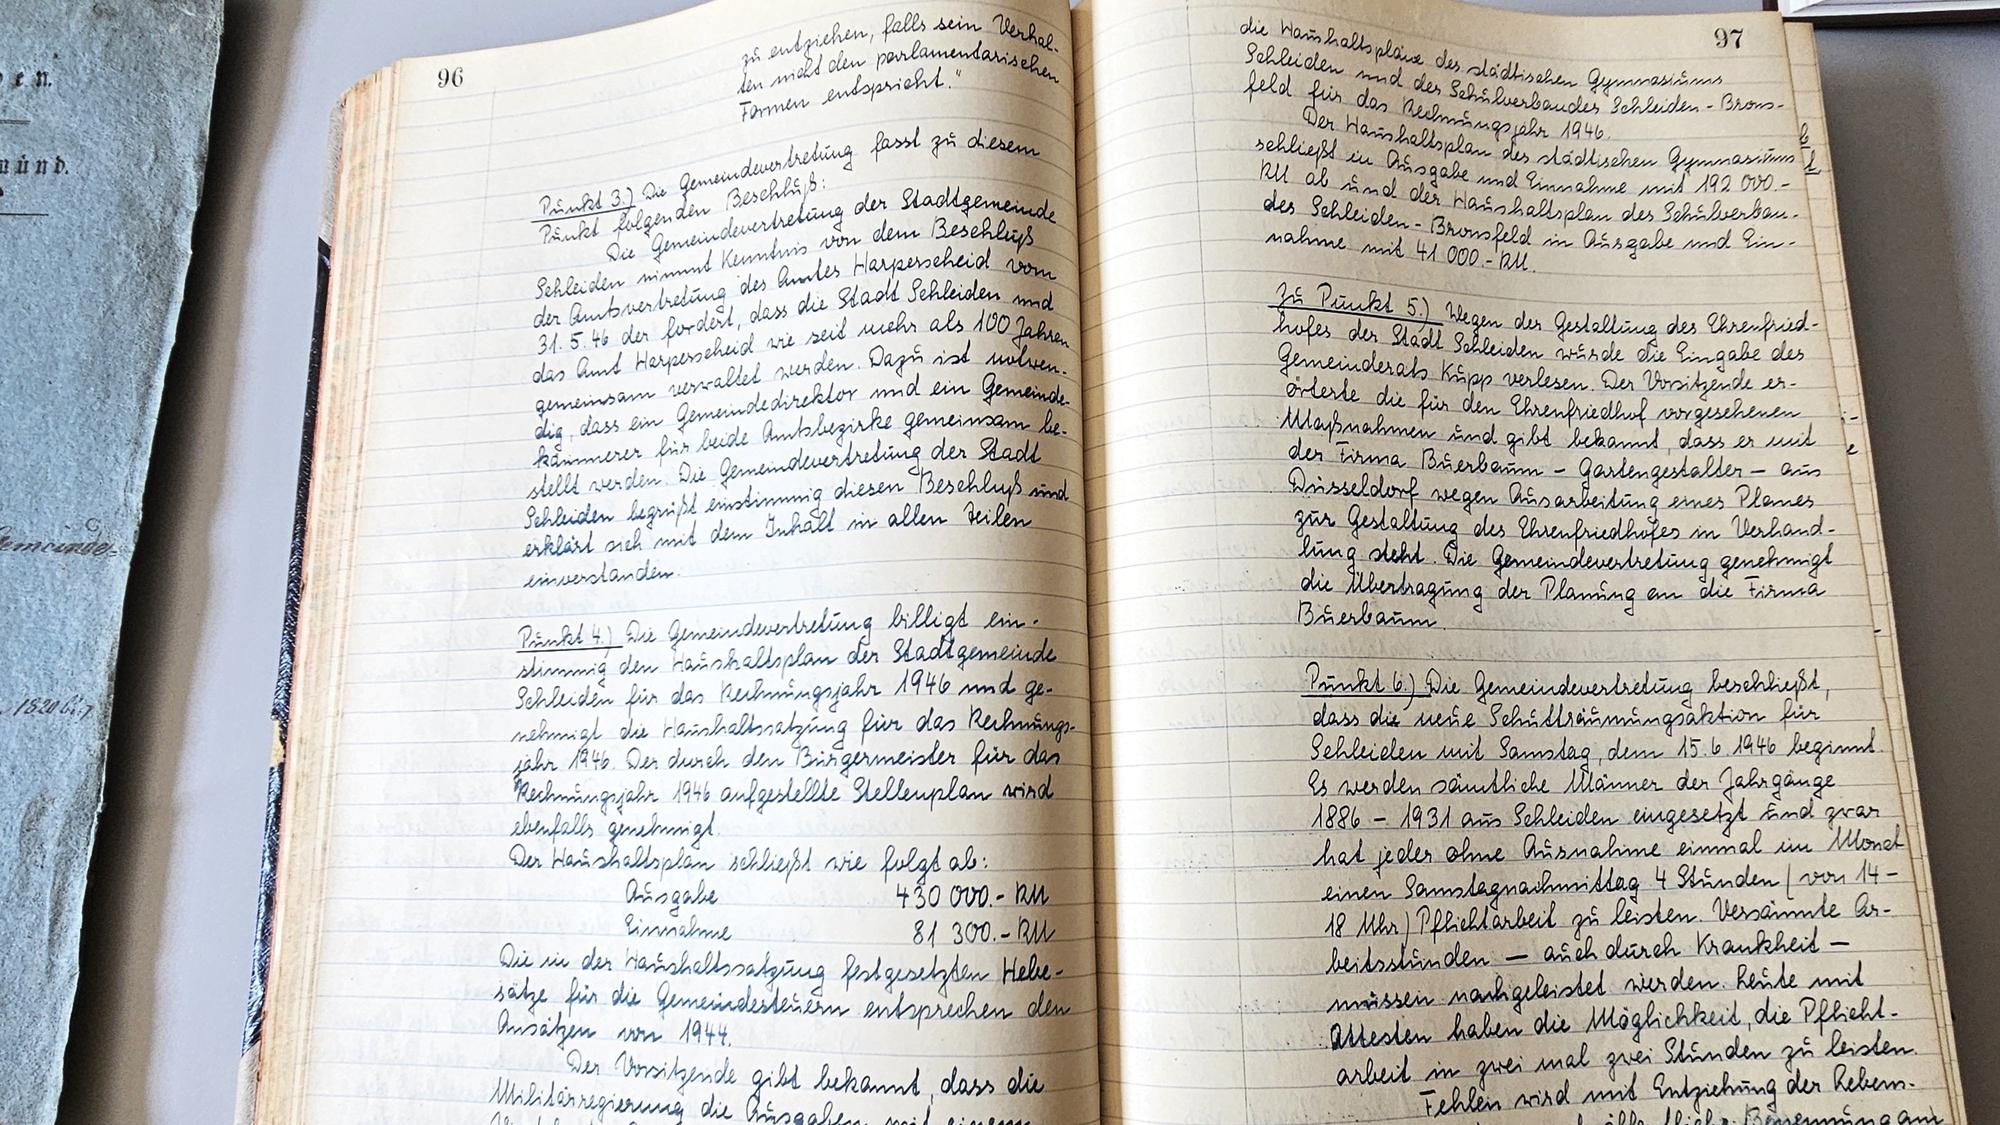 en.
münd.
Gemeinde-
1820 bis
96
zu entziehen, falls sein Verhal-
ten nicht den parlamentarischen
Formen entspricht."
Punkt 3.) Die Gemeindevertretung fasst zu diesem
Punkt folgenden Beschluß:
Die Gemeindevertretung der Stadtgemeinde
Schleiden nimmt Kenntnis von dem Beschluß
der Amtsvertretung des Amtes Harperscheid vom
31.5.46 der fordert, dass die Stadt Schleiden und
das Amt Harperscheid wie seit mehr als 100 Jahren
gemeinsam verwaltet werden. Dazu ist notwen-
dig, dass ein Gemeindedirektor und ein Gemeinde-
kämmerer für beide Amtsbezirke gemeinsam be-
stellt werden. Die Gemeindevertretung der Stadt
Schleiden begrüßt einstimmig diesen Beschluß und
erklärt sich mit dem Inhalt in allen Teilen
einverstanden.
Punkt 4.) Die Gemeindevertretung billigt ein-
stimmig den Haushaltsplan der Stadtgemeinde
Schleiden für das Rechnungsjahr 1946 und ge-
nehmigt die Haushaltssatzung für das Rechnungs-
jahr 1946. Der durch den Bürgermeister für das
Rechnungsjahr 1946 aufgestellte Stellenplan wird
ebenfalls genehmigt.
Der Haushaltsplan schließt wie folgt ab:
Ausgabe 430 000.- RM
Einnahme 81 300.- RM
Die in der Haushaltssatzung festgesetzten Hebe-
sätze für die Gemeindesteuern entsprechen den
Ansätzen von 1944.
Der Vorsitzende gibt bekannt, dass die
Militärregierung die Ausgaben mit einem
97
die Haushaltspläne des städtischen Gymnasiums
Schleiden und des Schulverbandes Schleiden - Brons-
feld für das Rechnungsjahr 1946.
Der Haushaltsplan des städtischen Gymnasiums
schließt in Ausgabe und Einnahme mit 192 000.-
RM ab und der Haushaltsplan des Schulverban-
des Schleiden - Bronsfeld in Ausgabe und Ein-
nahme mit 41 000.- RM.
Zu Punkt 5.) Wegen der Gestaltung des Ehrenfried-
hofes der Stadt Schleiden wurde die Eingabe des
Gemeinderats Kupp verlesen. Der Vorsitzende er-
örterte die für den Ehrenfriedhof vorgesehenen
Maßnahmen und gibt bekannt, dass er mit
der Firma Buerbaum - Gartengestalter - aus
Düsseldorf wegen Ausarbeitung eines Planes
zur Gestaltung des Ehrenfriedhofes in Verhand-
lung steht. Die Gemeindevertretung genehmigt
die Übertragung der Planung an die Firma
Buerbaum.
Punkt 6.) Die Gemeindevertretung beschließt,
dass die neue Schutträumungsaktion für
Schleiden mit Samstag, dem 15.6.1946 beginnt.
Es werden sämtliche Männer der Jahrgänge
1886 - 1931 aus Schleiden eingesetzt und zwar
hat jeder ohne Ausnahme einmal im Monat
einen Samstagnachmittag 4 Stunden (von 14-
18 Uhr) Pflichtarbeit zu leisten. Versäumte Ar-
beitsstunden — auch durch Krankheit —
müssen nachgeleistet werden. Leute mit
Attesten haben die Möglichkeit, die Pflicht-
arbeit in zwei mal zwei Stunden zu leisten.
Fehlen wird mit Entziehung der Lebens-